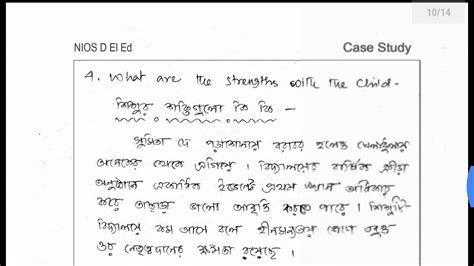 10/14
NIOS D El Ed
Case Study
4. What are the strengths with the child -
শিশুর শক্তিগুলো কি কি -
সুমিতা দে পড়াশোনায় খেলাধুলায়
অনেকের থেকে এগিয়ে । বিদ্যালয়ের বার্ষিক ক্রীড়া
অনুষ্ঠানে একাধিক ইভেন্টে প্রথম স্থান অধিকার
করে তাছাড়া ভালো আবৃত্তি করতে পারে । শিশুটি
বিদ্যালয়ে কম আসে বলে হীনমন্যতায়
ওর নেতৃত্বদানের ক্ষমতা রয়েছে ।